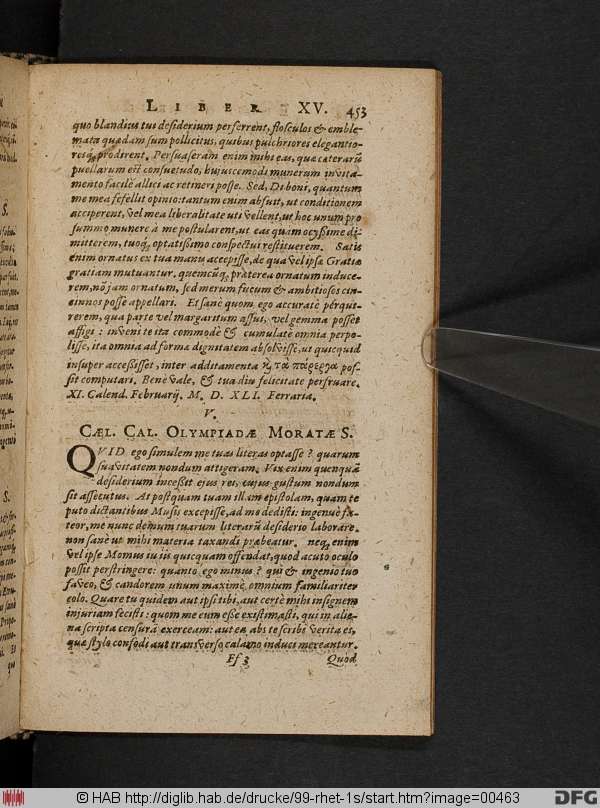 LIBER XV. 453
quo blandius tus desiderium perferrent, flosculos & emble-
mata quædam sum pollicitus, quibus pulchriores elegantio-
resq́; prodirent. Persuaseram enim mihi eas, quæ cæterarũ
puellarum est consuetudo, hujuscemodi munerum invita-
mento facilè allici ac retineri posse. Sed, Dî boni, quantum
me mea fefellit opinio: tantum enim abfuit, ut conditionem
acciperent, vel mea liberalitate uti vellent, ut hoc unum pro
summo munere à me postularent, ut eas quàm ocyßimè di-
mitterem, tuoq́; optatißimo conspectui restituerem. Satis
enim ornatus ex tua manu accepisse, de qua vel ipsæ Gratiæ
gratiam mutuantur. quemcũq; præterea ornatum induce-
rem, nõ jam ornatum, sed merum fucum & ambitiosos cin-
cinnos posse appellari. Et sanè quom ego accuratè pérqui-
rerem, qua parte vel margaritum assui, vel gemma posset
affigi: inveni te ita commodè & cumulatè omnia perpo-
lisse, ita omnia ad formæ dignitatem absolvisse, ut quicquid
insuper accessisset, inter additamenta & τὰ πάρεργα pos-
sit computari. Benè vale, & tua diu felicitate perfruare.
XI. Calend. Februarij. M. D. XLI. Ferrariæ.
V.
CÆL. CAL. OLYMPIADÆ MORATÆ S.
QVID ego similem me tuas literas optasse? quarum
suavitatem nondum attigeram. Vix enim quenquã
desiderium incessit ejus rei, cujus gustum nondum
sit assecutus. At postquam tuam illam epistolam, quam te
puto dictantibus Musis excepisse, ad me dedisti: ingenuè fa-
teor, me nunc demum tuarum literarũ desiderio laborare.
non sanè ut mihi materia taxandi præbeatur. neq; enim
vel ipse Momus in iis quicquam offendat, quod acuto oculo
possit perstringere: quanto ego minus? qui & ingenio tuo
faveo, & candorem unum maximè, omnium familiariter
colo. Quare tu quidem aut ipsi tibi, aut certè mihi insignem
injuriam fecisti: quom me eum esse existimasti, qui in alie-
na scripta censurã exerceam: aut ea abs te scribi verita es,
quæ stylo confodi aut transverso calamo induci mereantur.
Ff 3 Quod
© HAB http://diglib.hab.de/drucke/99-rhet-1s/start.htm?image=00463
DFG